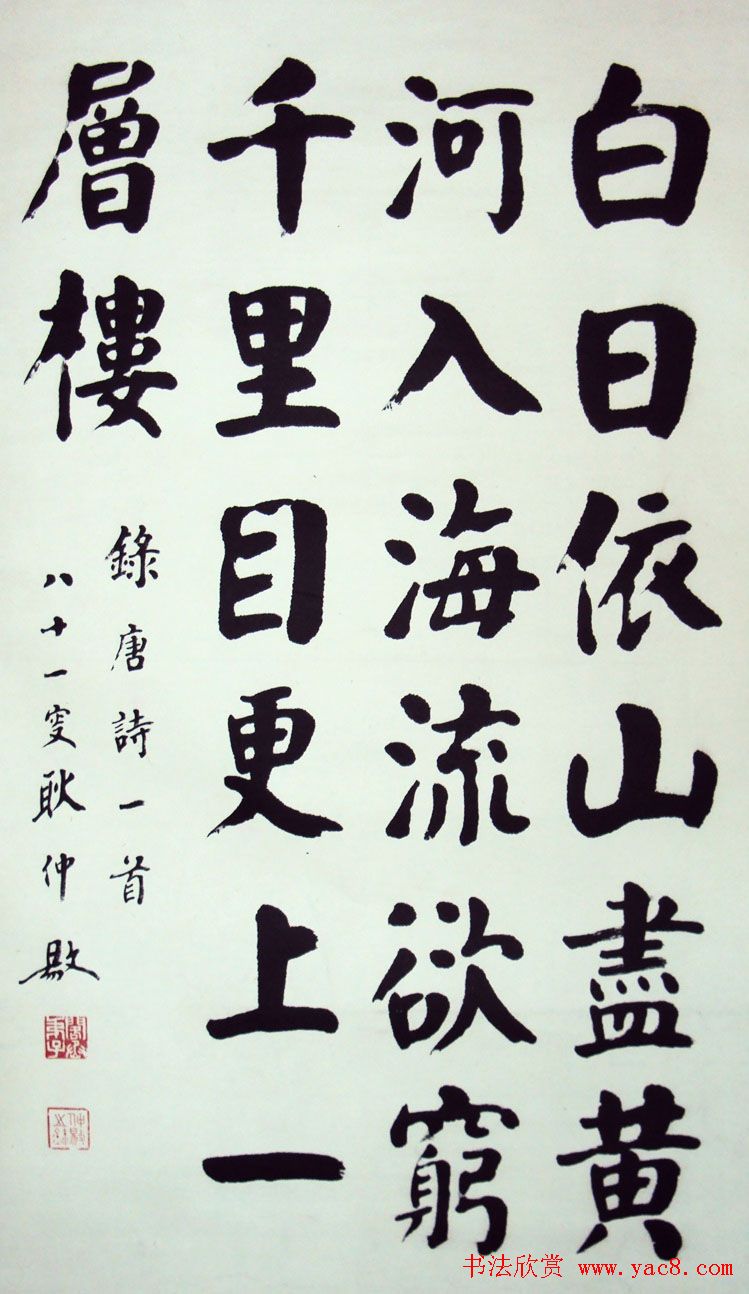 白日依山盡黃
河入海流欲窮
千里目更上一
層樓
錄唐詩一首
八十一叟耿仲敭
书法欣赏 www.yac8.com